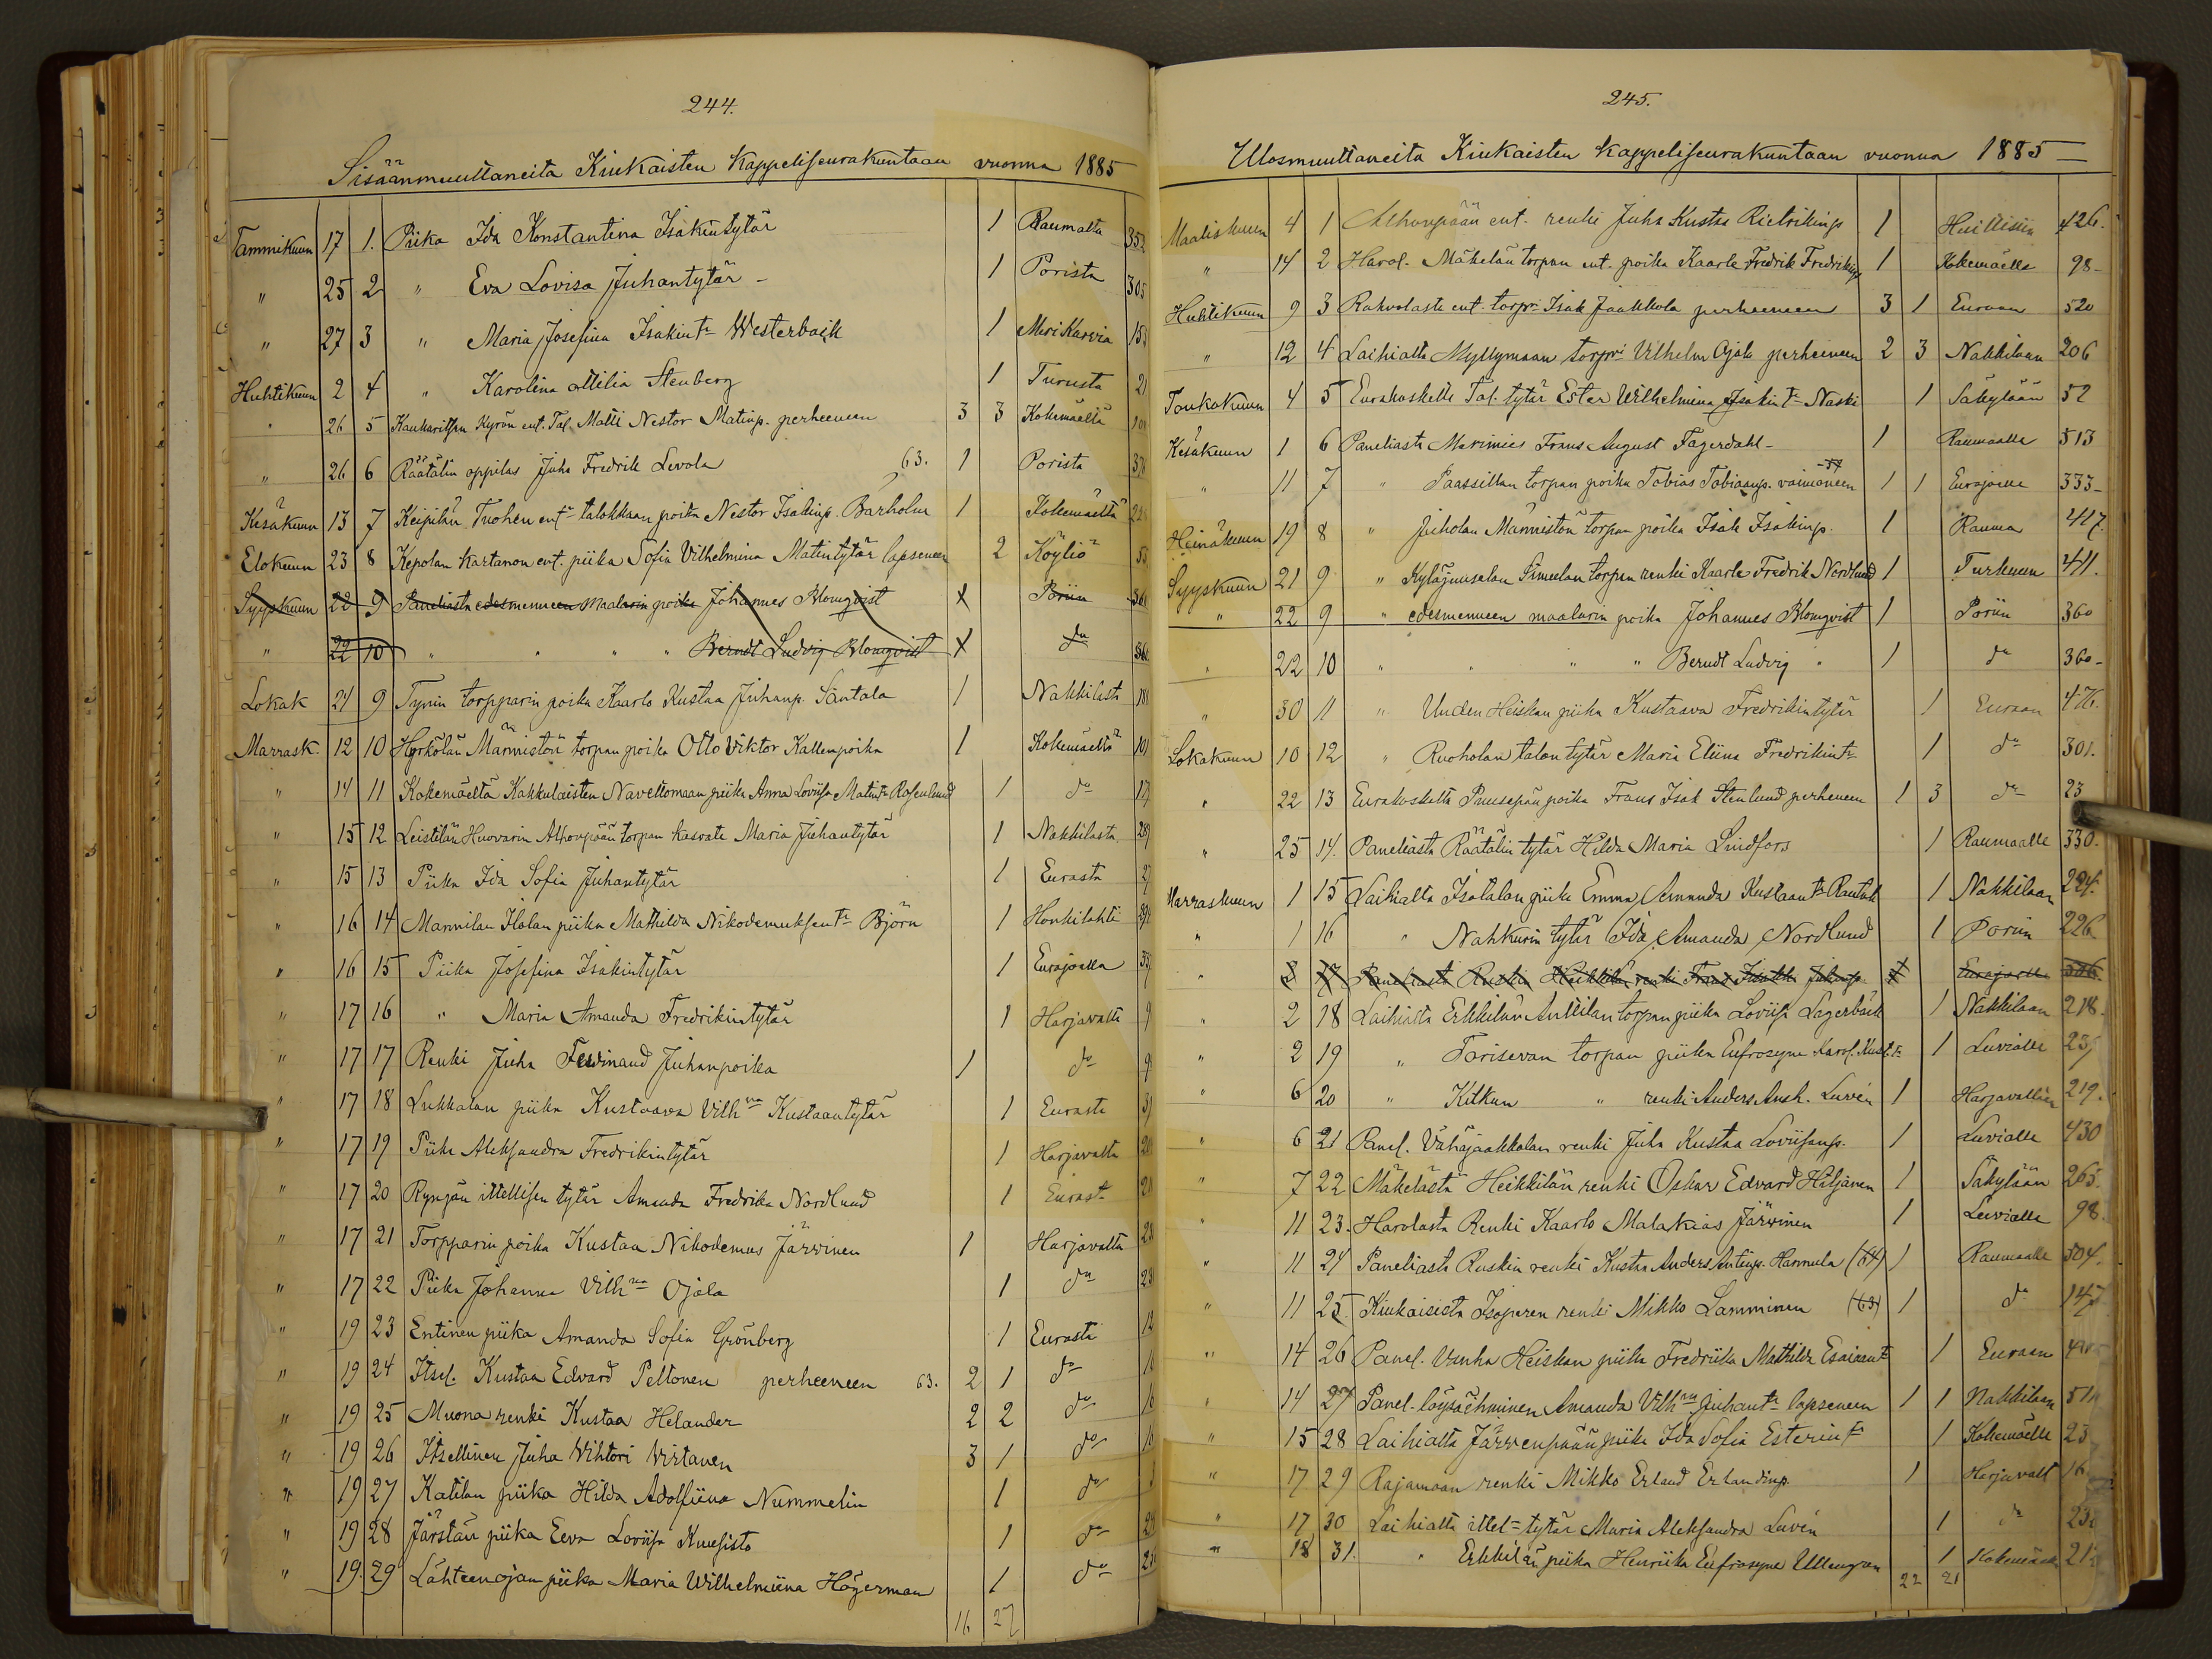 244.
Sisäänmuuttaneita Kiukaisten Kappeliseurakuntaan vuonna 1885
Tammikuun 17 1. Piika Ida Konstantina Isakintytär 1 Raumalta 352
" 25 2 " Eva Lovisa Juhantytär - 1 Porista 305
" 27 3 " Maria Josefina Isakint:r Westerback 1 Merikarvia 153
Huhtikuun 2 4 " Karolina Otilia Stenberg 1 Turusta 21
" 26 5 Kaukaritsan Kyrön ent. Tal. Matti Nestor Matinp. perheeneen 3 3 Kokemäeltä
" 26 6 Räätälin oppilas Juha Fredrik Levola 63. 1 Porista
Kesäkuun 13 7 Keipilän Tuohen ent:n talokkaan poika Nestor Isakinp. Barholm 1 Kokemäeltä
Elokuun 23 8 Kepolan Kartanon ent. piika Sofia Vilhelmina Matintytär lapseneen 2 Köyliö 53
Syyskuun 22 9 Paneliasta edesmenneen Maalarin poika Johannes Blomqvist X Poriin 360
" 22 10 " " " " Berndt Ludvig Blomqvist X d:o 360
Lokak 21 9 Tynin torpparin poika Kaarlo Kustaa Juhanp. Santala 1 Nakkilasta 181
Marrask. 12 10 Harkölän Männistön torpan poika Otto Viktor Kallenpoika 1 Kokemäeltä 101
" 14 11 Kokemäeltä Kakkulaisten Navettomaan piika Anna Loviisa Matint:r Rosenlund 1 d:o
" 15 12 Leistilän Huovarin Alhonpään torpan kasvate Maria Juhantytär 1 Nakkilasta 289
" 15 13 Piika Ida Sofia Juhantytär 1 Eurasta 27
" 16 14 Mannilan Ilolan piika Mathilda Nikodemuksent:r Björn 1 Honkilahti
" 16 15 Piika Josefina Isakintytär 1 Eurajoelta
" 17 16 " Maria Amanda Fredrikintytär 1 Harjavalta 9
" 17 17 Renki Juha Ferdinand Juhanpoika 1 d:o 9
" 17 18 Lukkalan piika Kustaava Vilh:na Kustaantytär 1 Eurasta
" 17 19 Piika Aleksandra Fredrikintytär 1 Harjavalta
" 17 20 Rynjän ittellisen tytär Amanda Fredrika Nordlund 1 Eurast
" 17 21 Torpparin poika Kustaa Nikodemus Järvinen 1 Harjavalta
" 17 22 Piika Johanna Vilh:na Ojala 1 d:o
" 19 23 Entinen piika Amanda Sofia Grönberg 1 Eurasta
" 19 24 Itsel. Kustaa Edvard Peltonen perheeneen 63. 2 1 d:o
" 19 25 Muona renki Kustaa Helander 2 2 d:o
" 19 26 Itsellinen Juha Vihtori Virtanen 3 1 d:o
" 19 27 Katilan piika Hilda Adolfiina Nummelin 1 d:o
" 19 28 Järstän piika Eeva Loviisa Kuusisto 1 d:o
" 19. 29 Lähteenojan piika Maria Wilhelmiina Högerman 1 d:o
16 27
245.
Ulosmuuttaneita Kiukaisten kappeliseurakuntaan vuonna 1885
Maaliskuun 4 1 Alhonpään ent. renki Juha Kustaa Rietrikinp 1 Huittisiin 426.
" 14 2 Harol. Mäkelän torpan ent. poika Kaarle Fredrik Fredrikinp 1 Kokemäelle 98-
Huhtikuun 9 3 Rahvolasta ent. torp:ri Isak Jaakkola perheeneen 3 1 Euraan 520
" 12 4 Laihialta Myllymaan torp:ri Vilhelm Ojala perheineen 2 3 Nakkilaan 206
Toukokuun 4 5 Eurakoskelta Tal. tytär Ester Wilhelmina Isakint:r Naski 1 Säkylään 52
Kesäkuun 1 6 Paneliasta Merimies Frans August Fagerdahl - 1 Raumaalle 513
" 11 7 " Paassillan torpan poika Tobias Tobiaanp. vaimoneen 1 1 Eurajoelle 333-
Heinäkuun 19 8 " Juholan Männistön torpan poika Isak Isakinp. 1 Rauma 417.
Syyskuun 21 9 " Kyläjuuselan Simeelan torpan renki Kaarle Fredrik Nordlund 1 Turkuun 411.
" 22 9 " edesmenneen maalarin poika Johannes Blomqvist 1 Poriin 360
" 22 10 " " " " Berndt Ludvig " 1 d:o 360-
" 30 11 " Uuden Heiskan piika Kustaava Fredrikintytär 1 Euraan 476.
Lokakuun 10 12 " Ruoholan talon tytär Maria Eliina Fredrikint:r 1 d:o 301.
" 22 13 Eurakoskelta Puusepän poika Frans Isak Stenlund perheneen 1 3 d:o 23
" 25 14. Paneliasta Räätälin tytär Hilda Maria Lindfors 1 Raumaalle 330.
Marraskuun 1 15 Laihialta Isotalon piika Emma Amanda Kustaant:r Rautak 1 Nakkilaan 224.
" 1 16 " Nahkurin tytär Ida Amanda Nordlund 1 Poriin 226
" 2 17 Paneliasta Ruskin Heikkilän renki Frans Isakki Juhanp. 1 Eurajoelle 336.
" 2 18 Laihialta Erkkilän Anttilan torpan piika Loviisa Lagerbäck 1 Nakkilaan 218.
" 2 19 " Torisevan torpan piika Eufrosyne Karol. Kust.t:r 1 Luvialle
" 6 20 " Kitkun " renki Anders Ansh. Luvén 1 Harjavaltaan 219.
" 6 21 Panel. Vähäjaakkolan renki Juha Kustaa Loviisanp. 1 Luvialle 430
" 7 22 Mäkelästä Heikkilän renki Oskar Edvard Hiljanen 1 Säkylään 265.
" 11 23. Harolasta Renki Kaarlo Malakias Järvinen 1 Luvialle 98.
" 11 24 Paneliasta Ruskin renki Kustaa Anders Antinp. Hannula (64) 1 Raumaalle 304.
" 11 25. Kiukaisista Isoperen renki Mikko Lamminen (63) 1 d:o 147
" 14 26 Panel. Vanha Heiskan piika Fredriika Mathilda Esaiaant:r 1 Euraan
" 14 27 Panel. löysäihminen Amanda Vilh:na Juhant:r lapseneen 1 1 Nakkilaan
" 15 28 Laihialta Järvenpään piika Ida Sofia Esterint:r 1 Kokemäelle
" 17 29 Rajamaan renki Mikko Erland Erlandinp. 1 Harjavalt
" 17 30 Laihialta ittel:n tytär Maria Aleksandra Luvén 1 d:o
" 18 31. " Erkkilän piika Henriika Eufrosyne Ullengren 1 Kokemäelle
22 21